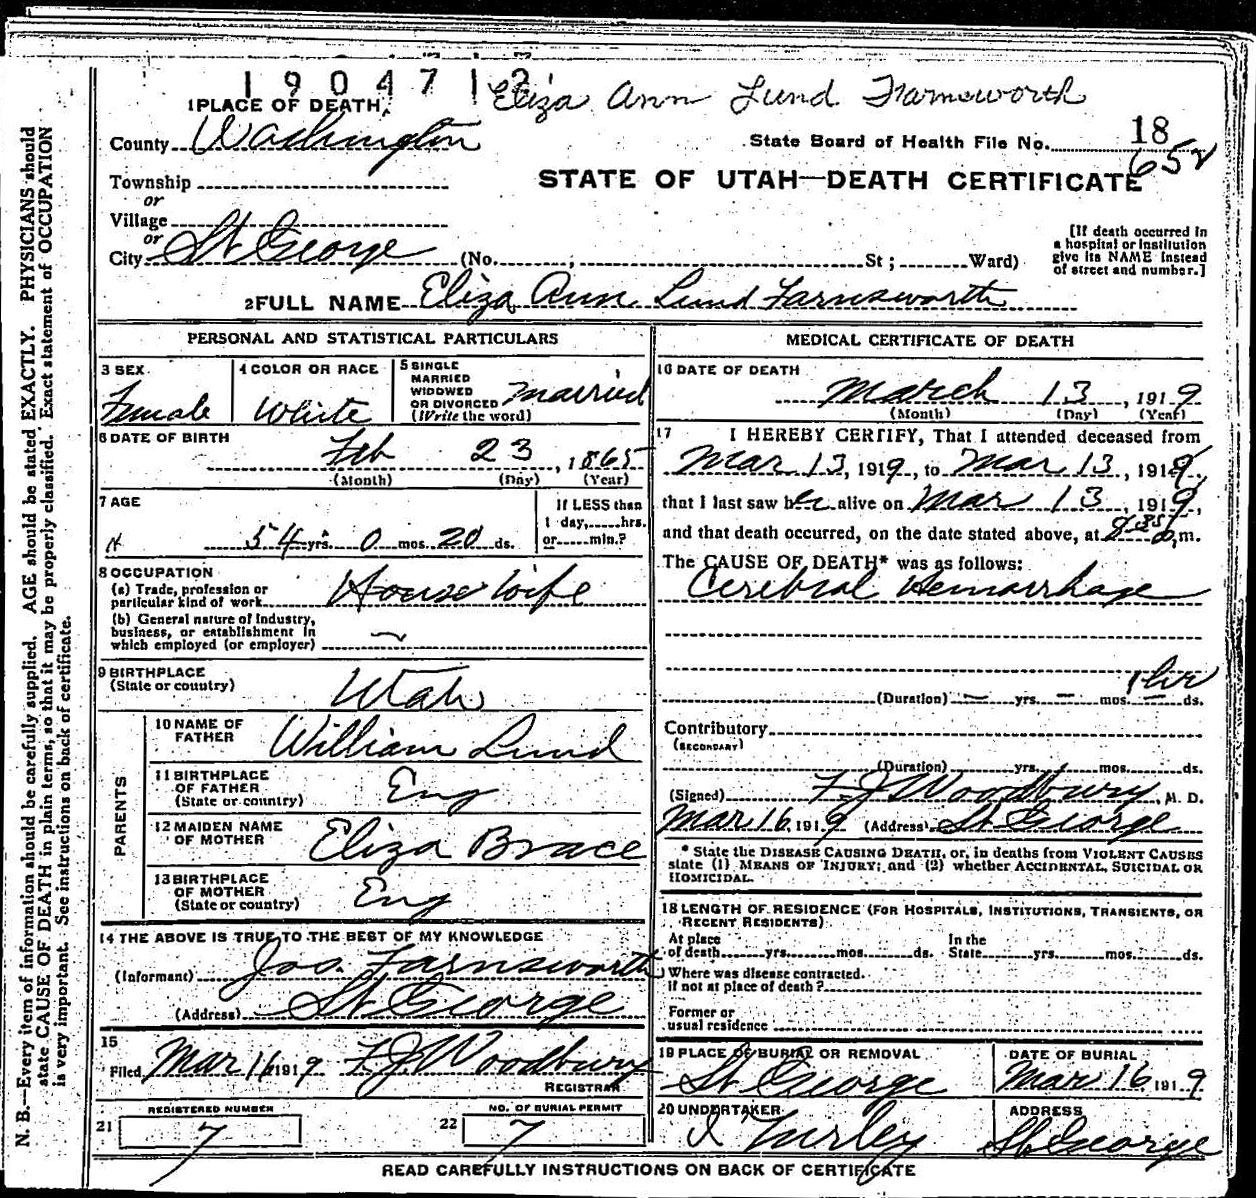 1904712
Eliza Ann Lund Farnsworth
1 PLACE OF DEATH
County Washington
State Board of Health File No. 18
652
Township
or
Village
or
City St George (No. ; St ; Ward)
STATE OF UTAH—DEATH CERTIFICATE
[If death occurred in
a hospital or institution
give its NAME instead
of street and number.]
2 FULL NAME Eliza Ann Lund Farnsworth
PERSONAL AND STATISTICAL PARTICULARS
3 SEX
Female
4 COLOR OR RACE
White
5 SINGLE
MARRIED
WIDOWED
OR DIVORCED
(Write the word)
Married
6 DATE OF BIRTH
Feb 23, 1865
(Month) (Day) (Year)
7 AGE
54 yrs. 0 mos. 20 ds.
If LESS than
1 day, hrs.
or min.?
8 OCCUPATION
(a) Trade, profession or
particular kind of work House wife
(b) General nature of Industry,
business, or establishment in
which employed (or employer) —
9 BIRTHPLACE
(State or country)
Utah
PARENTS
10 NAME OF
FATHER
William Lund
11 BIRTHPLACE
OF FATHER
(State or country)
Eng
12 MAIDEN NAME
OF MOTHER
Eliza Brace
13 BIRTHPLACE
OF MOTHER
(State or country)
Eng
14 THE ABOVE IS TRUE TO THE BEST OF MY KNOWLEDGE
(Informant) Jos. Farnsworth
(Address) St George
15
Filed Mar 16 1919 F. J. Woodbury
REGISTRAR
REGISTERED NUMBER
21 7
NO. OF BURIAL PERMIT
22 7
MEDICAL CERTIFICATE OF DEATH
16 DATE OF DEATH
March 13, 1919
(Month) (Day) (Year)
17 I HEREBY CERTIFY, That I attended deceased from
Mar 13, 1919, to Mar 13, 1919
that I last saw her alive on Mar 13, 1919,
and that death occurred, on the date stated above, at m.
The CAUSE OF DEATH* was as follows:
Cerebral Hemorrhage
1 hr
(Duration) — yrs. — mos. ds.
Contributory
(SECONDARY)
(Duration) yrs. mos. ds.
(Signed) F. J. Woodbury, M. D.
Mar 16, 1919 (Address) St George
* State the DISEASE CAUSING DEATH, or, in deaths from VIOLENT CAUSES
state (1) MEANS OF INJURY; and (2) whether ACCIDENTAL, SUICIDAL OR
HOMICIDAL.
18 LENGTH OF RESIDENCE (FOR HOSPITALS, INSTITUTIONS, TRANSIENTS, OR
RECENT RESIDENTS)
At place
of death yrs. mos. ds.
In the
State yrs. mos. ds.
Where was disease contracted.
if not at place of death?
Former or
usual residence
19 PLACE OF BURIAL OR REMOVAL
St George
DATE OF BURIAL
Mar 16 1919
20 UNDERTAKER
Turley
ADDRESS
St George
READ CAREFULLY INSTRUCTIONS ON BACK OF CERTIFICATE
N. B.—Every item of information should be carefully supplied. AGE should be stated EXACTLY. PHYSICIANS should
state CAUSE OF DEATH in plain terms, so that it may be properly classified. Exact statement of OCCUPATION
is very important. See instructions on back of certificate.